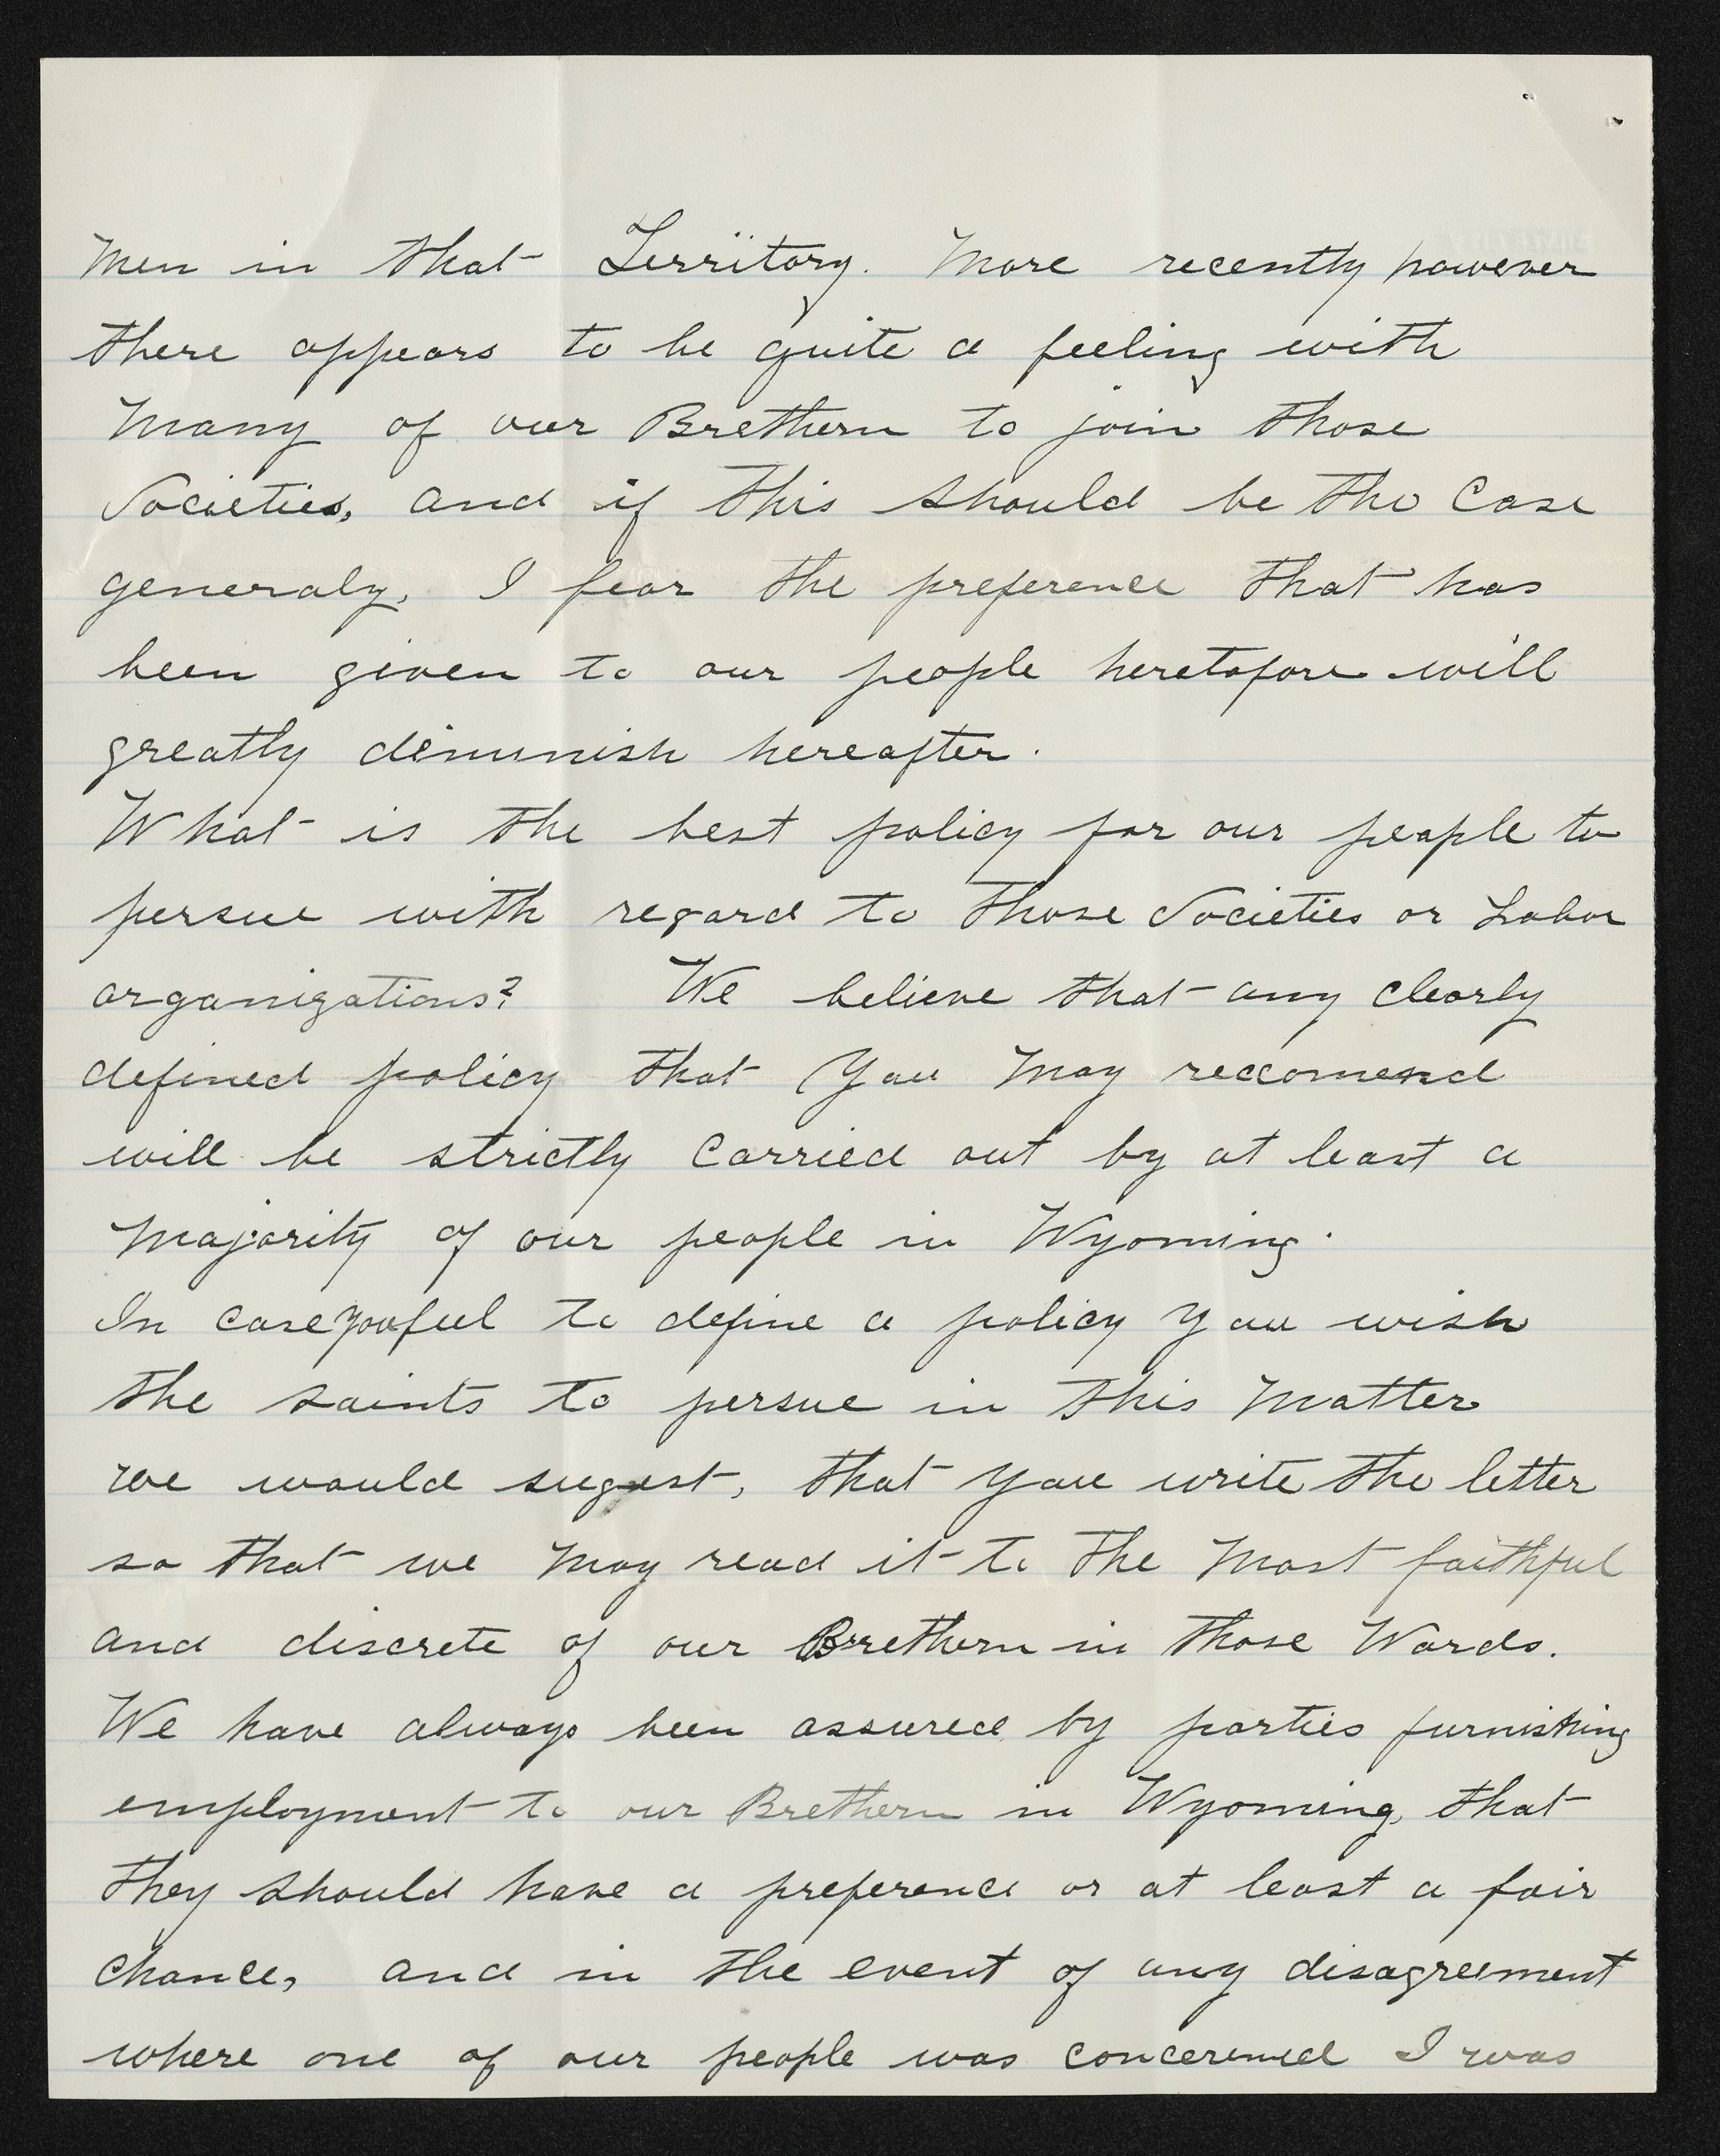 men in that Terriitory. More recently however
there appears to be quite a feeling with
many of our Brethern to join those
Societies, and if this should be the case
generaly, I fear the preference that has
been given to our people heretofore will
greatly dimunish hereafter.
What is the best policy for our people to
persue with regard to those Societies or Labor
organizations? We believe that any clearly
defined policy that you may reccomend
will be strictly carried out by at least a
majority of our people in Wyoming.
In case you feel to define a policy you wish
the saints to persue in this matter
we would sugest, that you write the letter
so that we may read it to the most faithful
and discrete of our Brethern in those Wards.
We have always been assured by parties furnishing
employment to our Brethern in Wyoming, that
they should have a preference or at least a fair
chance, and in the event of any disagreement
where one of our people was concerened I was